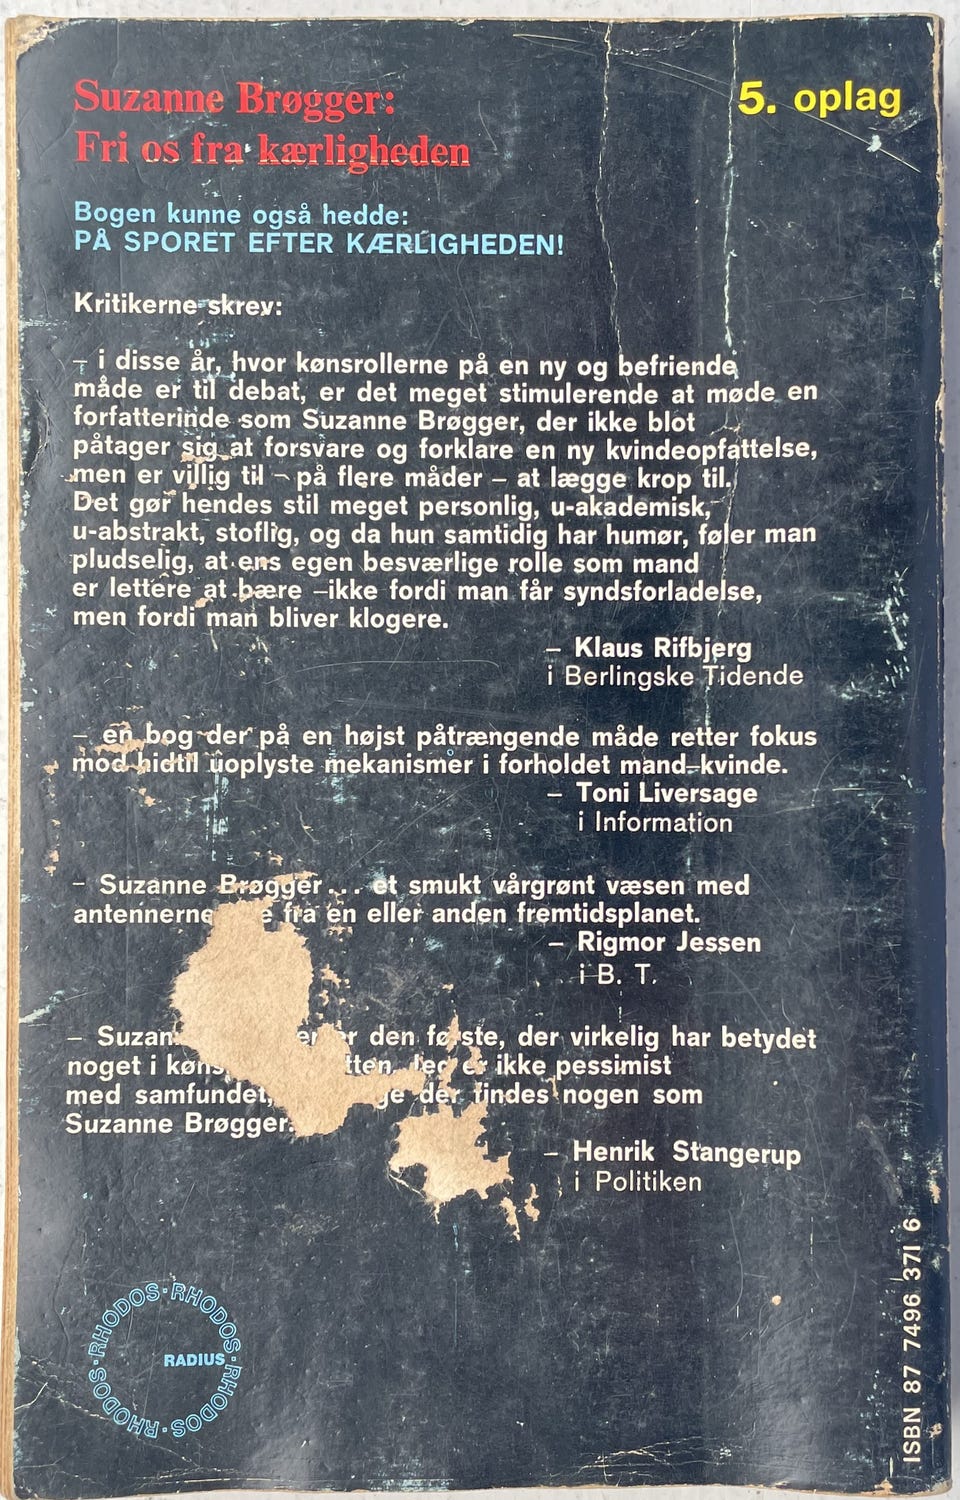 Suzanne Brøgger:
Fri os fra kærligheden
5. oplag
Bogen kunne også hedde:
PÅ SPORET EFTER KÆRLIGHEDEN!
Kritikerne skrev:
– i disse år, hvor kønsrollerne på en ny og befriende
måde er til debat, er det meget stimulerende at møde en
forfatterinde som Suzanne Brøgger, der ikke blot
påtager sig at forsvare og forklare en ny kvindeopfattelse,
men er villig til – på flere måder – at lægge krop til.
Det gør hendes stil meget personlig, u-akademisk,
u-abstrakt, stoflig, og da hun samtidig har humør, føler man
pludselig, at ens egen besværlige rolle som mand
er lettere at bære –ikke fordi man får syndsforladelse,
men fordi man bliver klogere.
– Klaus Rifbjerg
i Berlingske Tidende
– en bog der på en højst påtrængende måde retter fokus
mod hidtil uoplyste mekanismer i forholdet mand–kvinde.
– Toni Liversage
i Information
– Suzanne Brøgger... et smukt vårgrønt væsen med
antennerne fra en eller anden fremtidsplanet.
– Rigmor Jessen
i B. T.
– den første, der virkelig har betydet
noget i er ikke pessimist
med samfundet, der findes nogen som
Suzanne Brøgger.
– Henrik Stangerup
i Politiken
RHODOS·RHODOS·RHODOS·RHODOS·
RADIUS
ISBN 87 7496 371 6